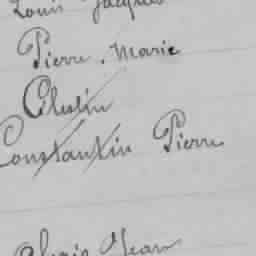 Louis Jacques
Pierre. Marie
Célestin
Constantin Pierre
Alexis Jean